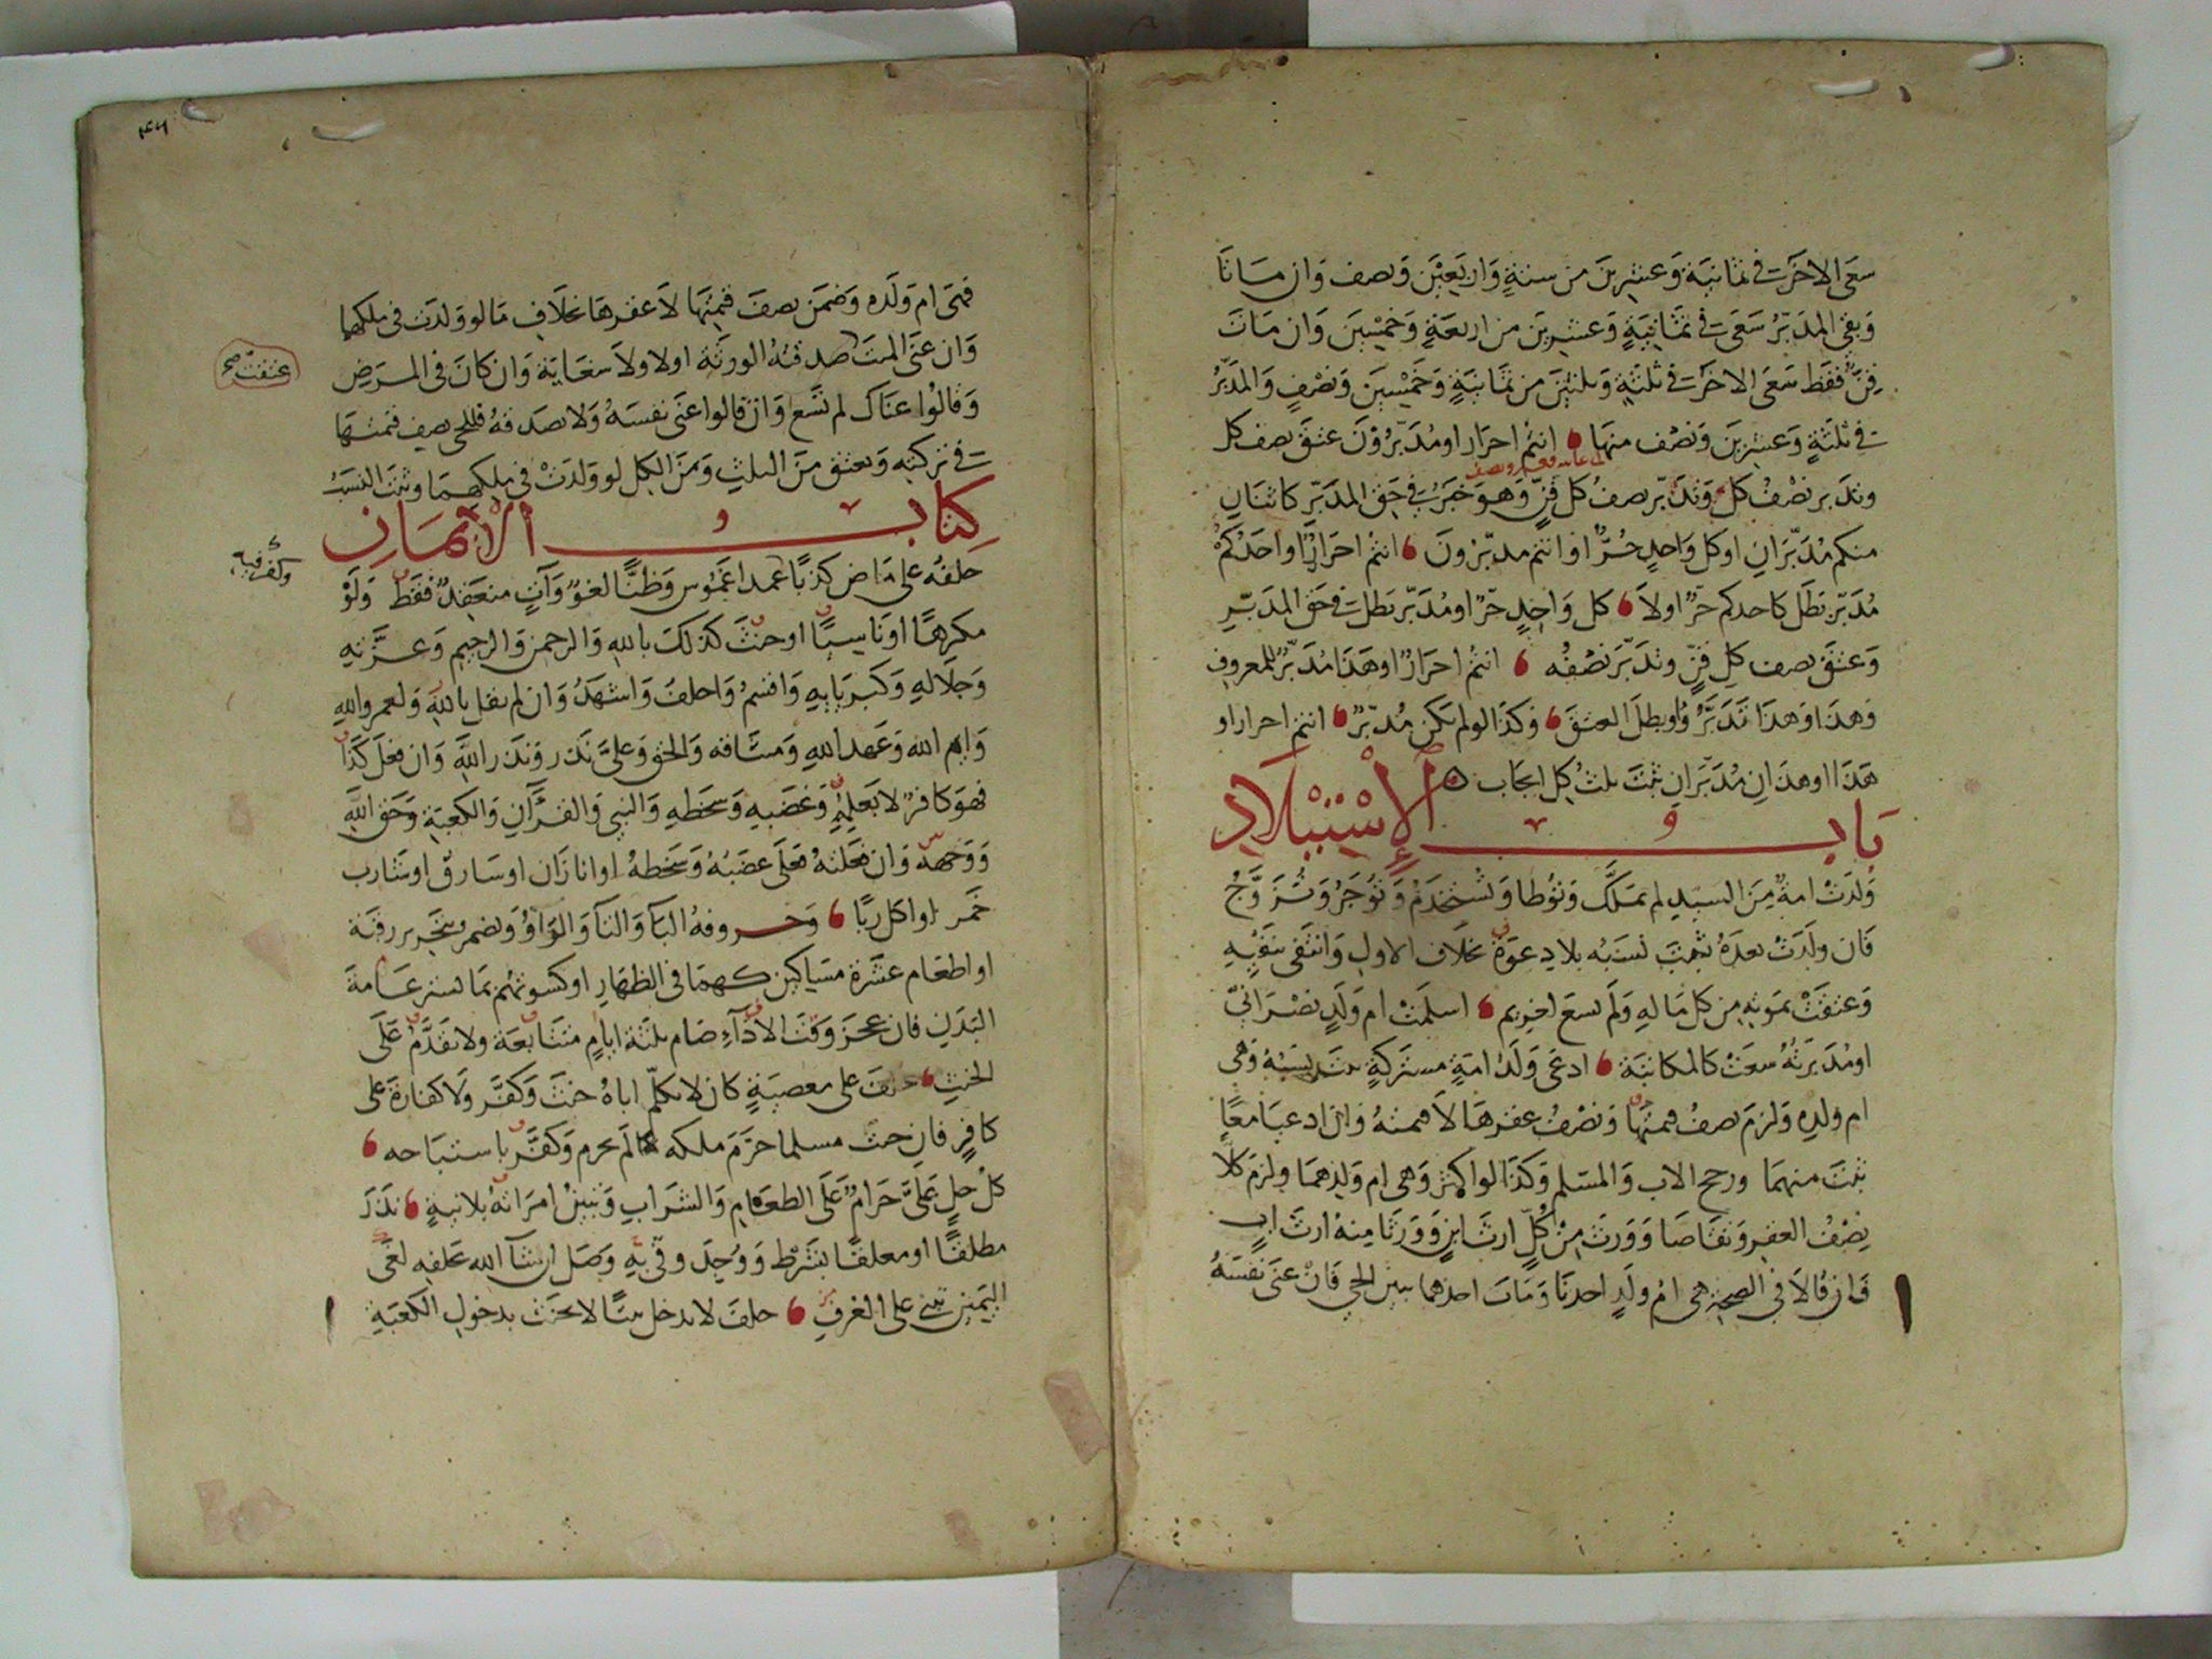 سعى الاخرت في ثمانية وعشرين من ستة واربعين ونصف وان ماتا
وبقي المدبر سعى ت في ثمانية وعشرين من اربعة وخمسين وان مات
قن فقط سعى الاخرت في ثلثة وثلثين من ثمانية وخمسين ونصف والمدبر
ت في ثلثة وعشرين ونصف منها انتم احرار او مدبرون عتق نصف كل
وتدبر نصف كل وتدبر نصف كل قن وهو خبرت في حق المدبر كاثنان
منكم مدبران او كل واحد حر او انتم مدبرون انتم احرار او احدكم
مدبر بطل كاحدكم حر اولا كل واحد حر او مدبر بطل ت في حق المدبر
وعتق نصف كل قن وتدبر نصفه انتم احرار او هذا مدبر للمعروف
وهذا وهذا تدبر او بطل العتق وكذا لو لم يكن مدبر انتم احرار او
هذا او هذان مدبران ثبت ثلث كل ايجاب
باب الاستيلاد
ولدت امة من السيد لم تملك وتوطا وتستخدم وتوجر وتزوج
فان ولدت بعده ثبت نسبه بلا دعوة بخلاف الاول وانتفى بنفيه
وعتقت بموته من كل ماله ولم تسع لغريم اسلمت ام ولد نصراني
او مدبرته سعت كالمكاتبة ادعى ولد امة مشتركة ثبت نسبه وهي
ام ولده ولزم نصف قيمتها ونصف عقرها لا قيمته وان ادعيا معا
ثبت منهما ورجح الاب والمسلم وكذا لو اكثر وهي ام ولدهما ولزم كلا
نصف العقر وتقاصا وورث من كل ارث ابن وورثا منه ارث اب
وان قالا في الصحة هي ام ولد احدنا ومات احدهما بين الحي فان عنى نفسه
فهي ام ولده وضمن نصف قيمتها لا عقرها بخلاف ما لو ولدت في ملكهما
وان عنى الميت صدقته الورثة اولا ولا سعاية وان كان في المرض
عتقت صح
وقالوا عناك لم تسع وان قالوا عنى نفسه ولا نصدقه فللحي نصف قيمتها
ت في تركته وتعتق من الثلث ومن الكل لو ولدت في ملكهما وثبت النسب
كتاب الايمان
حلفه على ماض كذبا عمدا غموس وظنا لغو وآت منعقد فقط ولو
وكفر فيه
مكرها او ناسيا او حنث كذلك بالله والرحمن والرحيم وعزته
وجلاله وكبريايه واقسم واحلف واشهد وان لم يقل بالله ولعمر والله
وايم الله وعهد الله وميثاقه والحق وعلي نذر ونذر الله وان فعل كذا
فهو كافر لا بعلمه وغضبه وسخطه والنبي والقرآن والكعبة وحق الله
ووجهه وان فعلته فعلي غضبه وسخطه او انا زان او سارق او شارب
خمر او اكل ربا وحروفه البآ والتآ والواو وتضمر وتحرير رقبة
او اطعام عشرة مساكين كهما في الظهار او كسوتهم بما يستر عامة
البدن فان عجز وقت الادآء صام ثلثة ايام متتابعة ولا يقدم على
الحنث حلف على معصية كان لا يكلم اباه حنث وكفر ولا كفارة على
كافر فان حنث مسلما حرم ملكه لم يحرم وكفر باستباحه
كل حل علي حرام على الطعام والشراب وتبين امراته بلا نية نذر
مطلقا او معلقا بشرط ووجد وفى به وصل ان شآ الله بحلفه لغى
اليمين تبنى على العرف حلف لا يدخل بيتا لا يحنث بدخول الكعبة